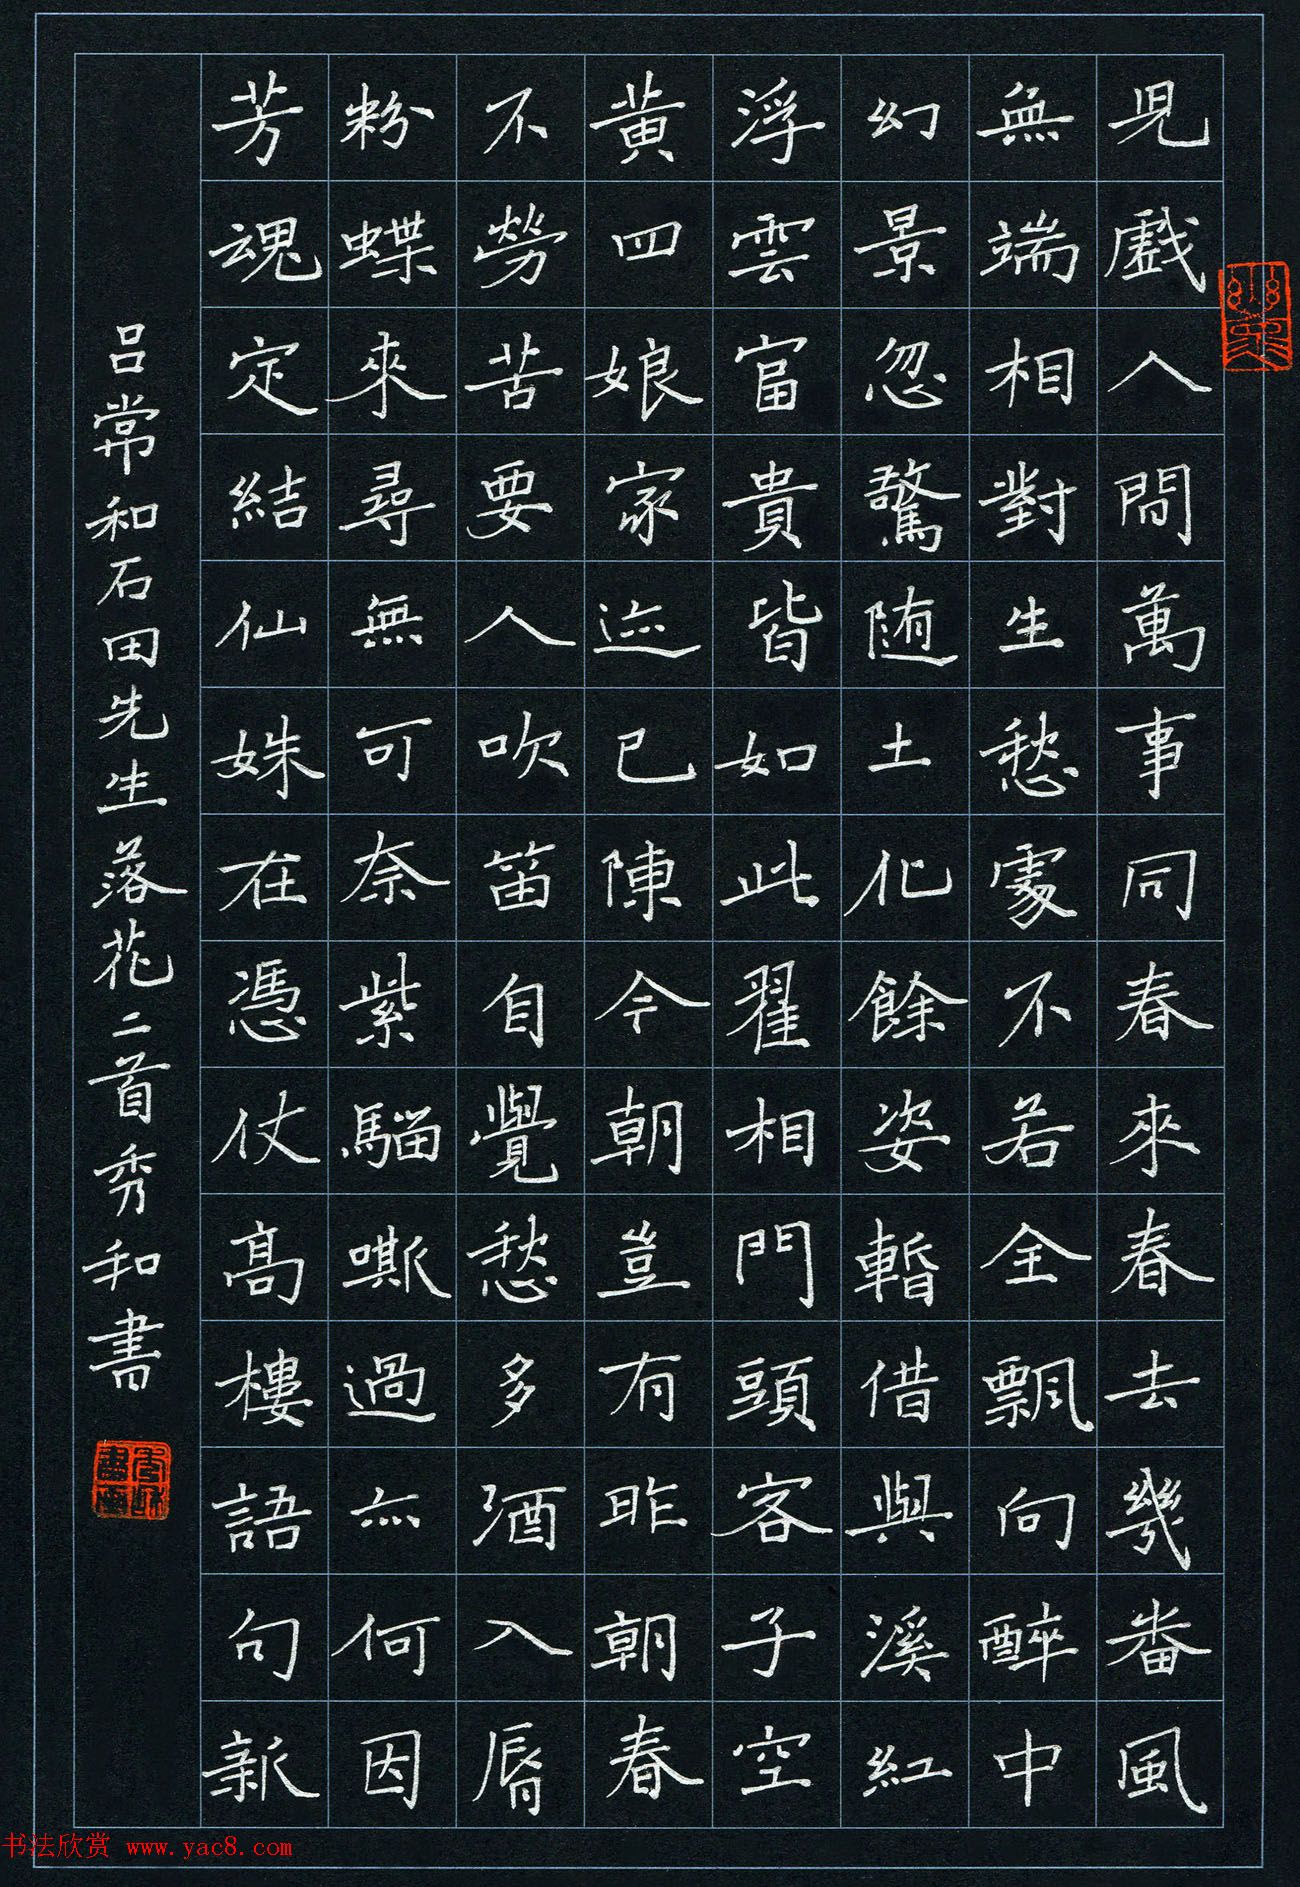 児戲人間萬事同春來春去幾番風
無端相對生愁處不若全飄向醉中
幻景忽驚随土化餘姿暫借與溪紅
浮雲富貴皆如此翟相門頭客子空
黃四娘家迹已陳今朝豈有昨朝春
不勞苦要人吹笛自覺愁多酒入脣
粉蝶來尋無可奈紫騮嘶過亦何因
芳魂定結仙姝在憑仗高樓語句新
吕常和石田先生落花二首秀和書
书法欣赏 www.yac8.com